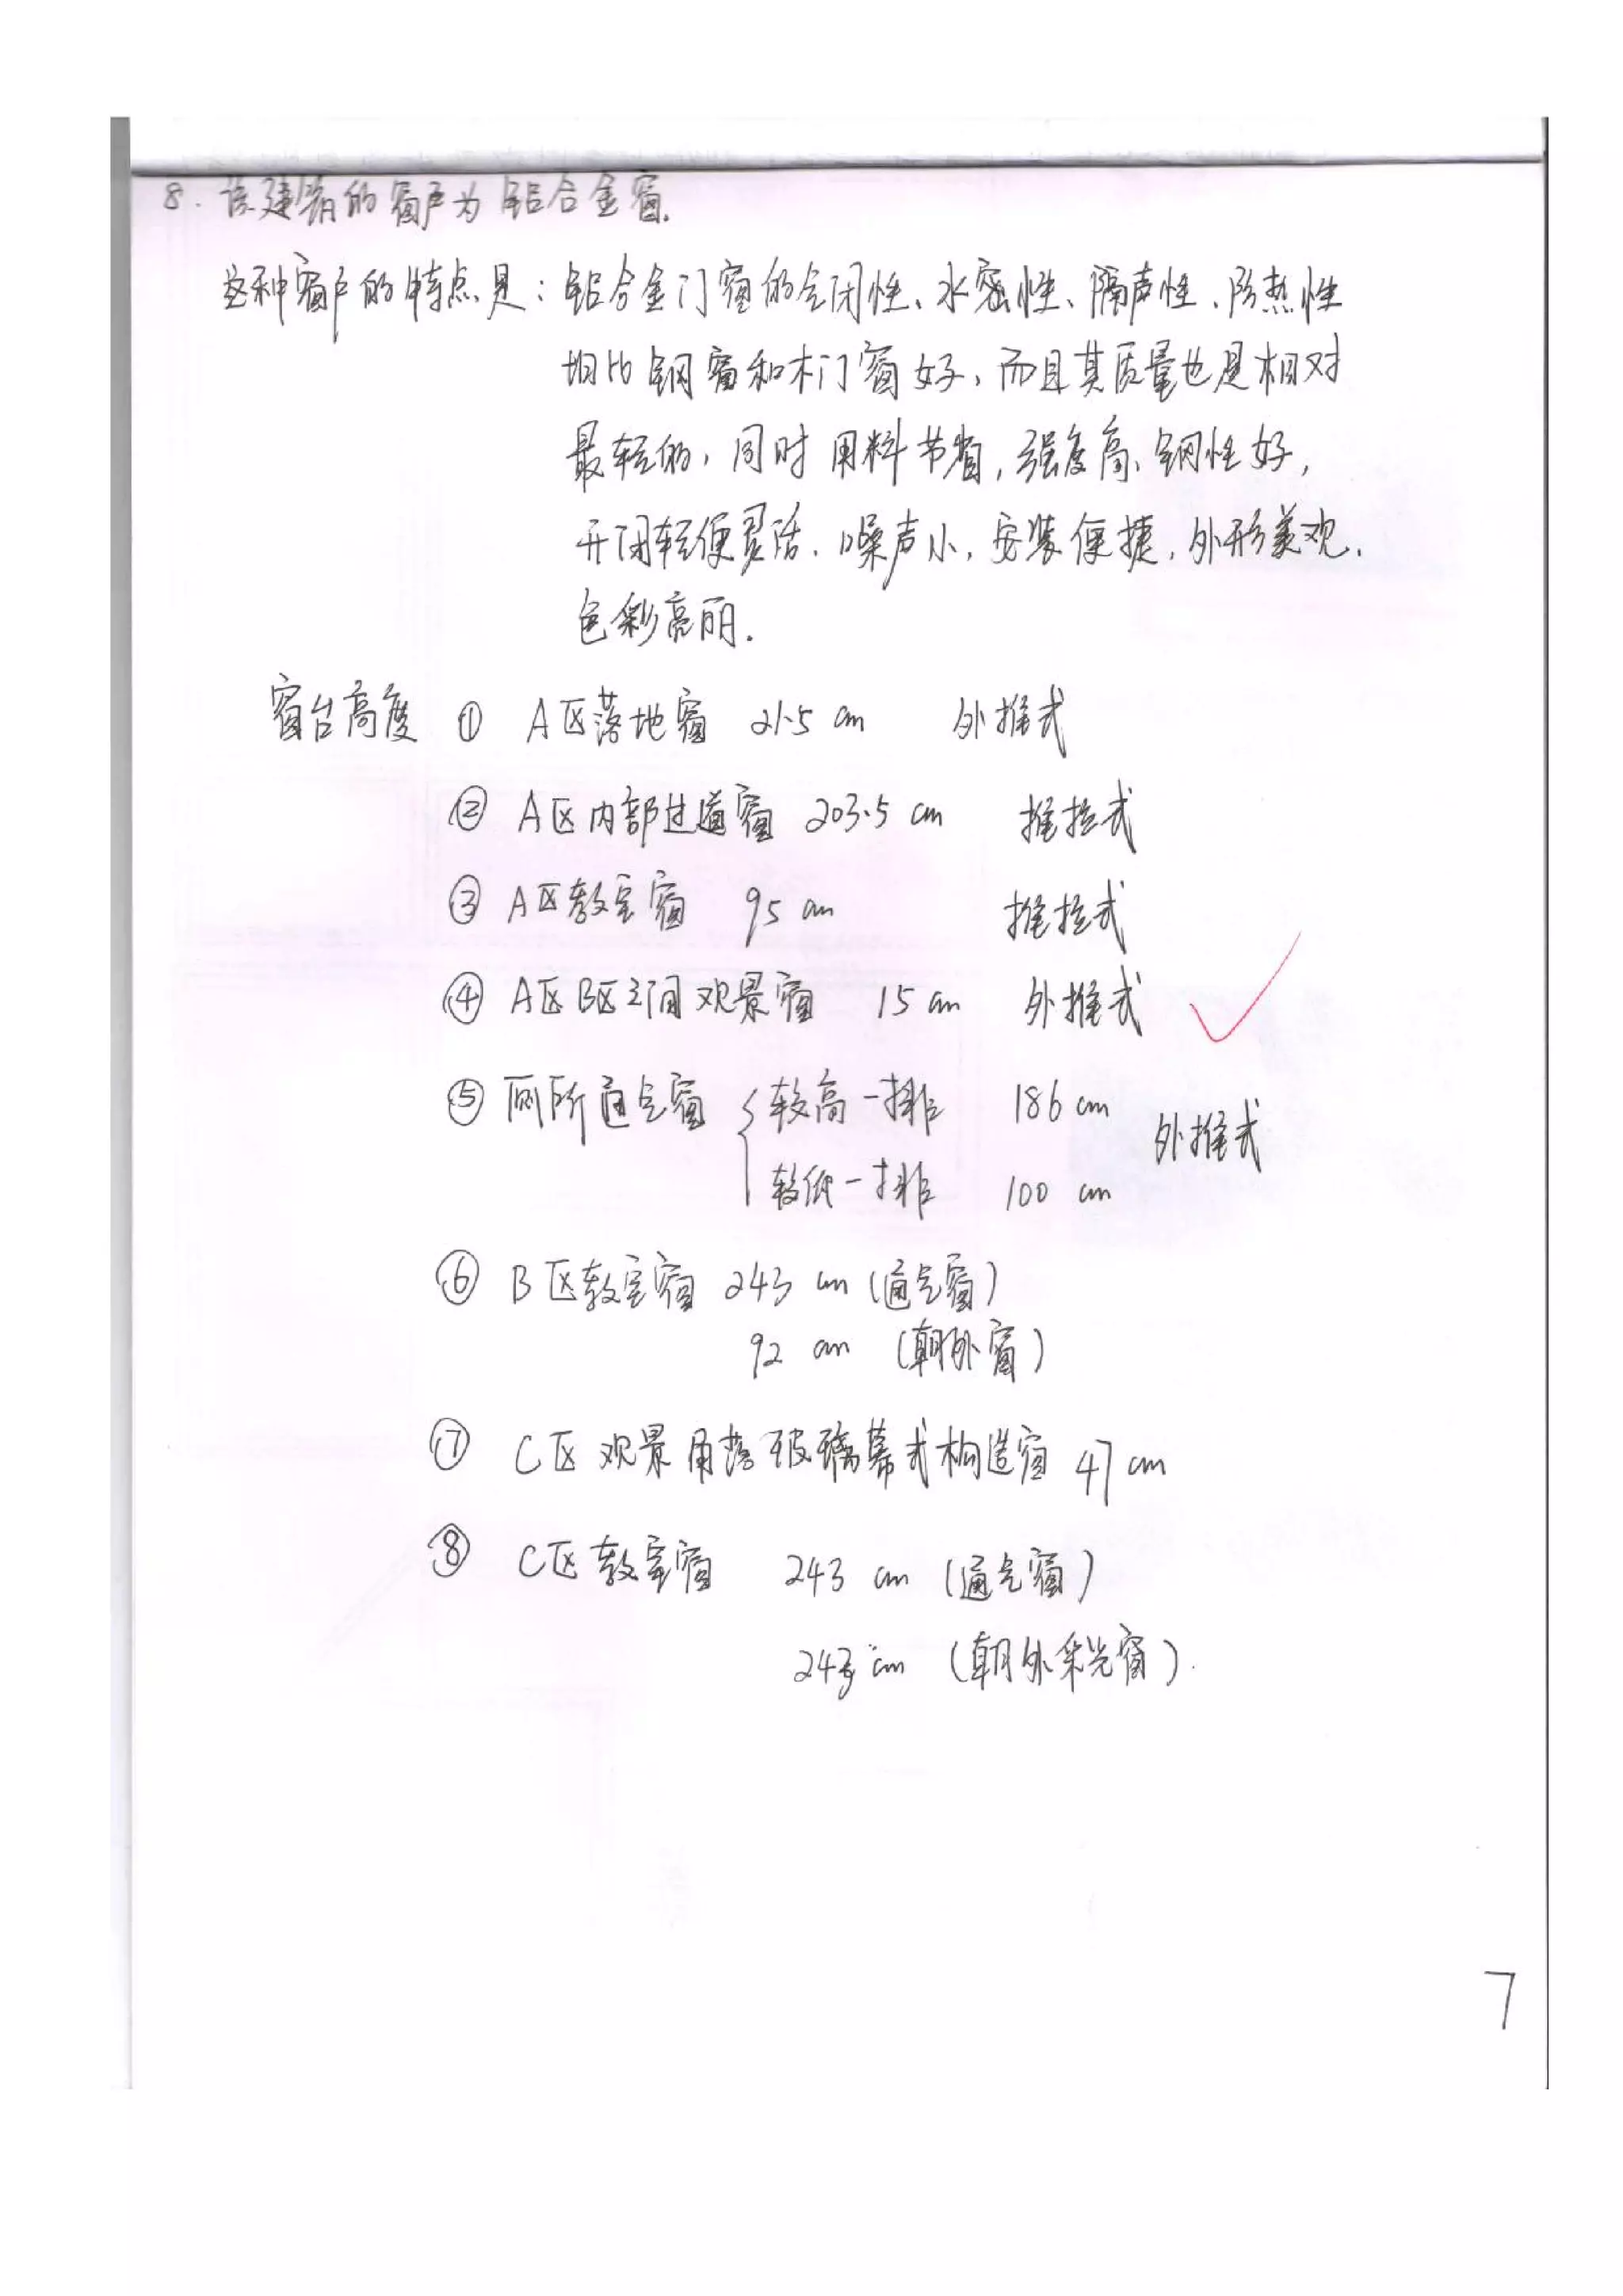 8. 该建筑的窗户为铝合金窗.
这种窗户的特点是：铝合金门窗的气闭性、水密性、隔声性、隔热性
均比钢窗和木门窗好，而且其质量也是相对
最轻的，同时用料节省，强度高、钢性好，
开闭轻便灵活、噪声小，安装便捷，外形美观、
色彩亮丽.
窗台高度 ① A区落地窗 21.5 cm 外推式
② A区内部过道窗 203.5 cm 推拉式
③ A区教室窗 95 cm 推拉式
④ A区B区之间观景窗 15 cm 外推式
⑤ 厕所通气窗 { 较高一排 186 cm 外推式
较低一排 100 cm
⑥ B区教室窗 243 cm (通气窗)
92 cm (朝外窗)
⑦ C区 观景用落玻璃幕式构造窗 47 cm
⑧ C区教室窗 243 cm (通气窗)
243 cm (朝外采光窗).
7